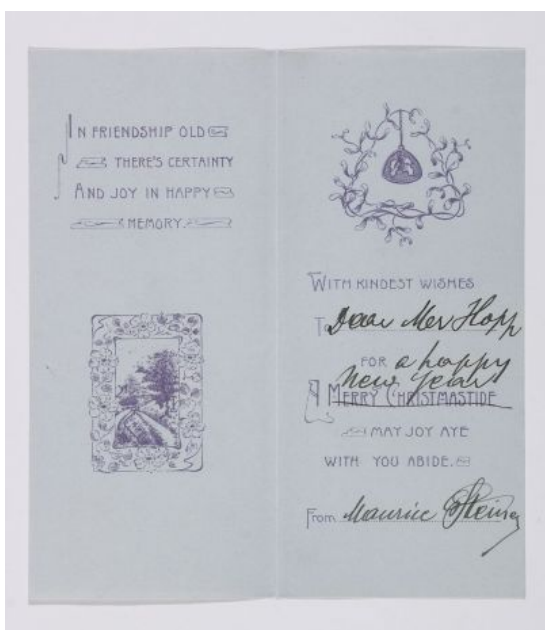 IN FRIENDSHIP OLD
THERE'S CERTAINTY
AND JOY IN HAPPY
MEMORY.
WITH KINDEST WISHES
To Dear Mr Hopp
FOR a happy
New Year
A MERRY CHRISTMASTIDE
MAY JOY AYE
WITH YOU ABIDE.
From Maurice